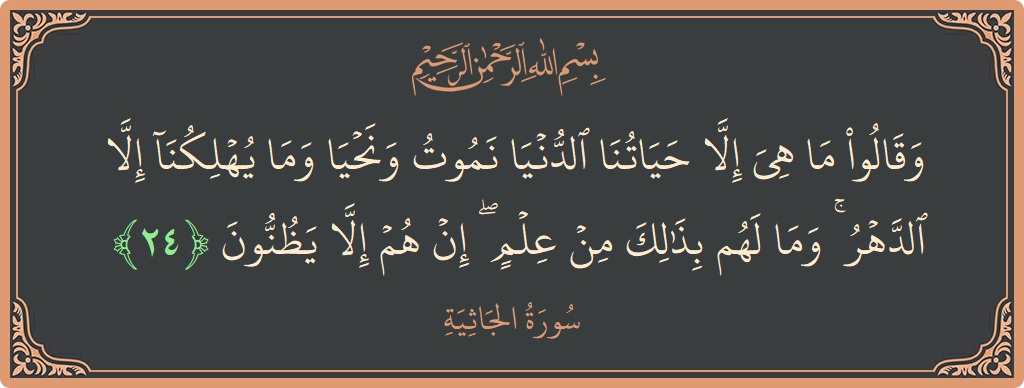 بِسْمِ اللهِ الرَّحْمٰنِ الرَّحِيْمِ
وَقَالُواْ مَا هِىَ إِلَّا حَيَاتُنَا ٱلدُّنْيَا نَمُوتُ وَنَحْيَا وَمَا يُهْلِكُنَآ إِلَّا
ٱلدَّهْرُ ۚ وَمَا لَهُم بِذَٰلِكَ مِنْ عِلْمٍ ۖ إِنْ هُمْ إِلَّا يَظُنُّونَ ﴿٢٤﴾
سُورَةُ الجَاثِيَةِ